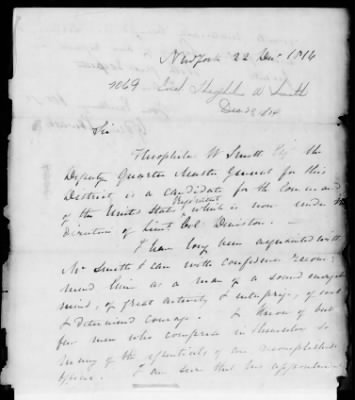 New York 22 Decr 1814
1069 Smith
Dec 22. 1814
Sir
Theophilus W Smith Esq the
Deputy Quarter Master General for this
District is a candidate for the command
of the United States Regiment which is now under the
direction of Lieut Col Deniston.
I have long been acquainted with
Mr Smith & can with confidence recom-
mend him as a man of a sound energetic
mind, of great activity & enterprize, of cool
& determined courage. I know of but
few men who comprise in themselves so
many of the essentials of an accomplished
I am sure that his appointment